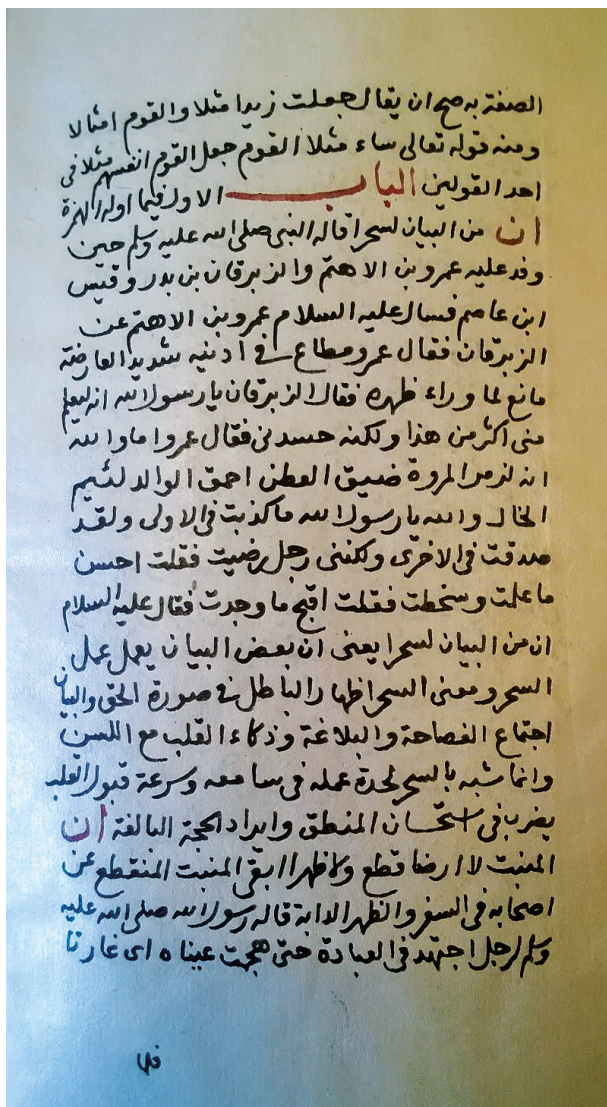 الصفة به صح ان يقال جعلت زيدا مثلا والقوم امثالا
ومنه قوله تعالى ساء مثلا القوم جعل القوم انفسهم مثلا فى
احد القولين الباب الاول فيما اوله الهمزة
ان من البيان لسحرا قاله النبى صلى الله عليه وسلم حين
وفد عليه عمرو بن الاهتم والزبرقان بن بدر وقيس
ابن عاصم فسال عليه السلام عمرو بن الاهتم عن
الزبرقان فقال عمرو مطاع فى ادنيه شديد العارضة
مانع لما وراء ظهره فقال الزبرقان يا رسول الله انه ليعلم
منى اكثر من هذا ولكنه حسدنى فقال عمروا ما والله
انه لزمر المروة ضيق العطن احمق الوالد لئيم
الخال والله يا رسول الله ما كذبت فى الاولى ولقد
صدقت فى الاخرى ولكننى رجل رضيت فقلت احسن
ما علمت وسخطت فقلت اقبح ما وجدت فقال عليه السلام
ان من البيان لسحرا يعنى ان بعض البيان يعمل عمل
السحر ومعنى السحر اظهار الباطل فى صورة الحق والبيان
اجتماع الفصاحة والبلاغة وذكاء القلب مع اللسن
وانما شبه بالسحر لحدة عمله فى سامعه وسرعة قبول القلب
يضرب فى استحسان المنطق وايراد الحجة البالغة ان
المنبت لا ارضا قطع ولا ظهرا ابقى المنبت المنقطع عن
اصحابه فى السفر والظهر الدابة قاله رسول الله صلى الله عليه
وسلم لرجل اجتهد فى العبادة حتى هجمت عيناه اى غارتا
فلما